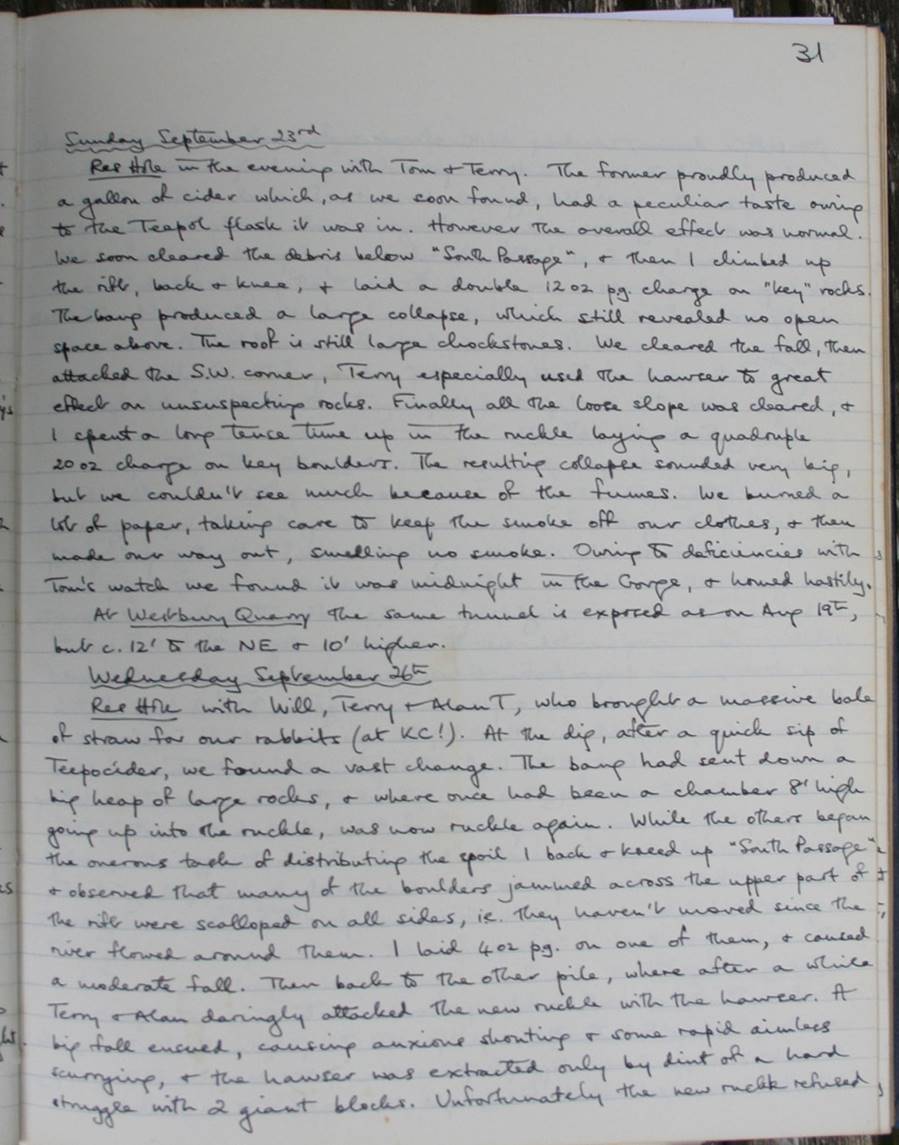 31
Sunday September 23rd
Res Hole in the evening with Tom & Terry. The former proudly produced
a gallon of cider which, as we soon found, had a peculiar taste owing
to the Teepol flask it was in. However the overall effect was normal.
We soon cleared the debris below "South Passage", & then I climbed up
the rift, back & knee, & laid a double 12 oz pg. charge on "key" rocks.
The bang produced a large collapse, which still revealed no open
space above. The roof is still large chockstones. We cleared the fall, then
attacked the S.W. corner, Terry especially used the hawser to great
effect on unsuspecting rocks. Finally all the loose slope was cleared, &
I spent a long tense time up in the ruckle laying a quadruple
20 oz charge on key boulders. The resulting collapse sounded very big,
but we couldn't see much because of the fumes. We burned a
lot of paper, taking care to keep the smoke off our clothes, & then
made our way out, smelling no smoke. Owing to deficiencies with
Tom's watch we found it was midnight in the Gorge, & homed hastily.
At Westbury Quarry the same tunnel is exposed as on Aug 19th,
but c. 12' to the NE & 10' higher.
Wednesday September 26th
Res Hole with Will, Terry & Alan T, who brought a massive bale
of straw for our rabbits (at KC!). At the dig, after a quick sip of
Teepocider, we found a vast change. The bang had sent down a
big heap of large rocks, & where once had been a chamber 8' high
going up into the ruckle, was now ruckle again. While the others began
the onerous task of distributing the spoil I back & kneed up "South Passage"
& observed that many of the boulders jammed across the upper part of
the rift were scalloped on all sides, ie. they haven't moved since the
river flowed around them. I laid 4 oz pg. on one of them, & caused
a moderate fall. Then back to the other pile, where after a while
Terry & Alan daringly attacked the new ruckle with the hawser. A
big fall ensued, causing anxious shouting & some rapid aimless
scurrying, & the hawser was extracted only by dint of a hard
struggle with 2 giant blocks. Unfortunately the new ruckle refused